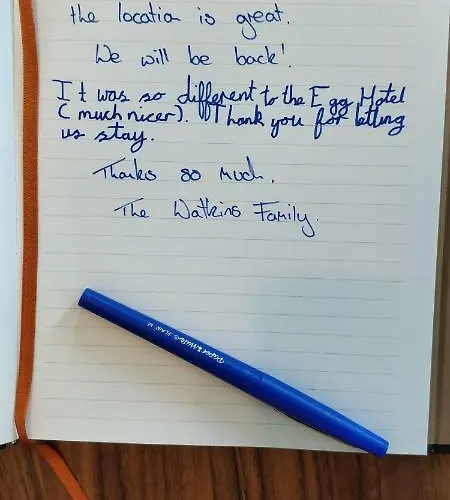 the location is great.
We will be back!
It was so different to the Egg Hotel
(much nicer). Thank you for letting
us stay.
Thanks so much.
The Watkins Family.
Paper Mate FLAIR M